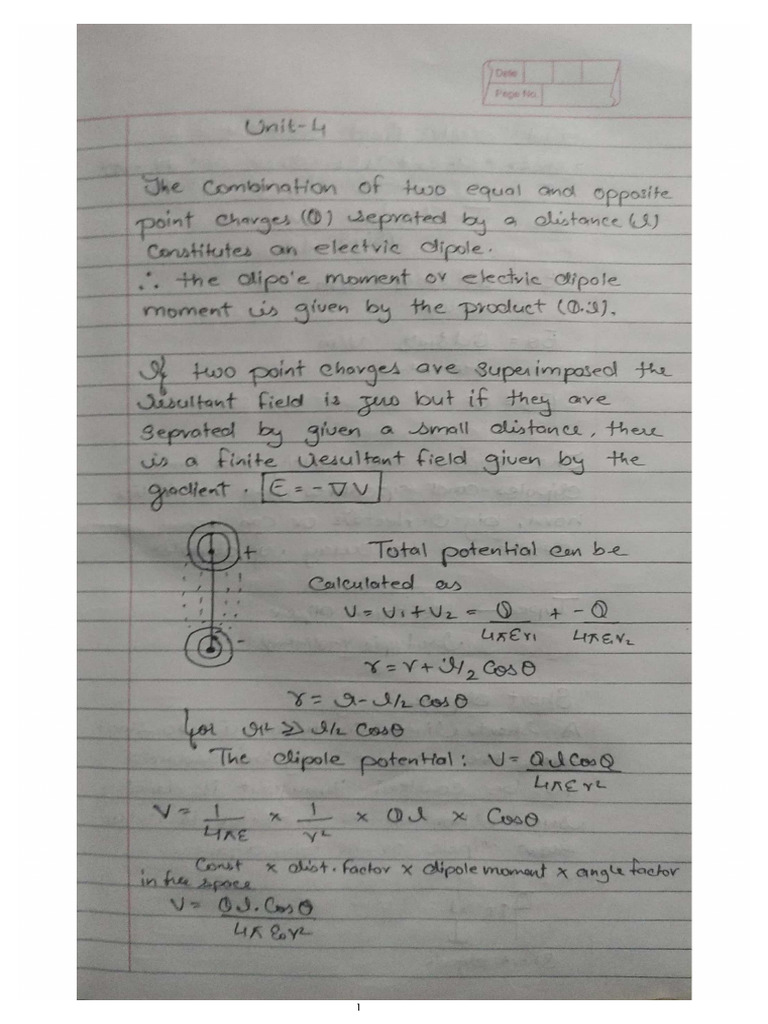 Date
Page No.
Unit-4
The combination of two equal and opposite
point charges (Q) seprated by a distance (l)
constitutes an electric dipole.
∴ the dipole moment or electric dipole
moment is given by the product (Q.l).
If two point charges are superimposed the
resultant field is zero but if they are
seprated by given a small distance, there
is a finite resultant field given by the
gradient. E = -∇V
+ Total potential can be
calculated as
V = V1 + V2 = Q/4πεr1 + -Q/4πεr2
-
r = r + l/2 cosθ
r = r - l/2 cosθ
for r² ≥ l/2 cosθ
The dipole potential: V = Ql cosθ/4πεr²
V = 1/4πε × 1/r² × Ql × cosθ
Const × dist. factor × dipole moment × angle factor
in free space
V = Ql.cosθ/4πε0r²
1